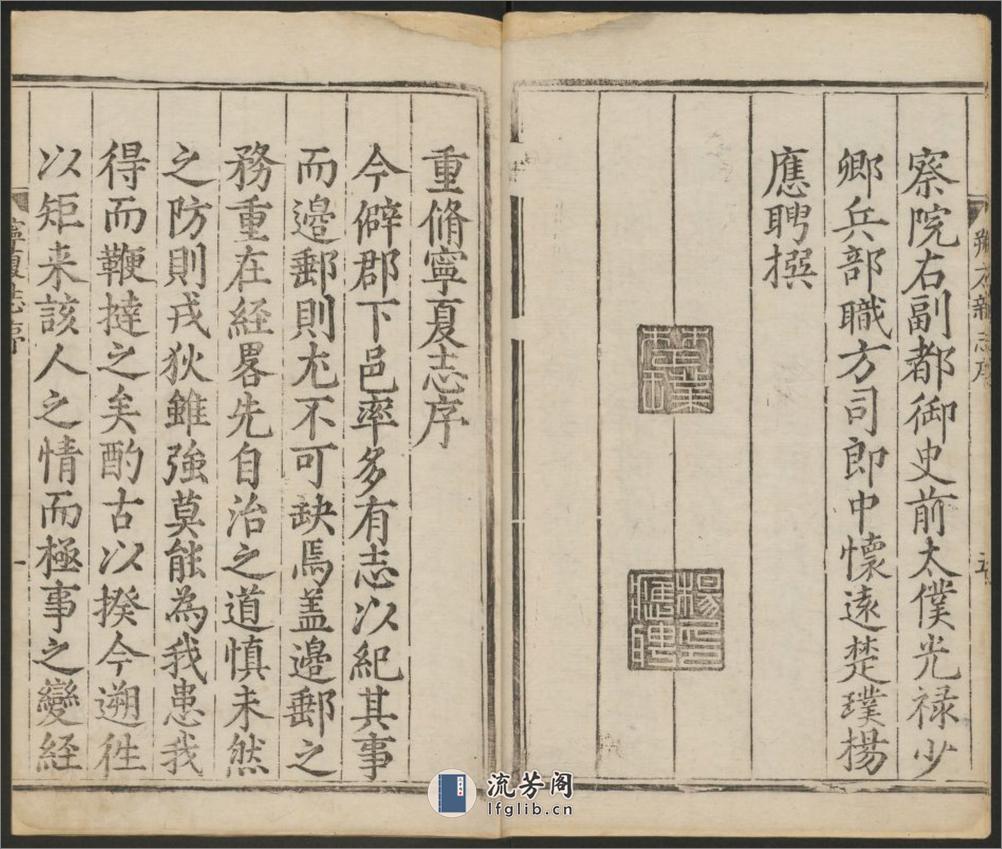 察院右副都御史前太僕光祿少
卿兵部職方司郎中懷遠楚璞楊
應聘撰
重脩寧夏志序
今僻郡下邑率多有志以紀其事
而邊郵則尤不可缺焉盖邊郵之
務重在経畧先自治之道慎未然
之防則戎狄雖強莫能為我患我
得而鞭撻之矣酌古以揆今遡徃
以矩来該人之情而極事之變経
寧夏志序
一
流芳阁
lfglib.cn